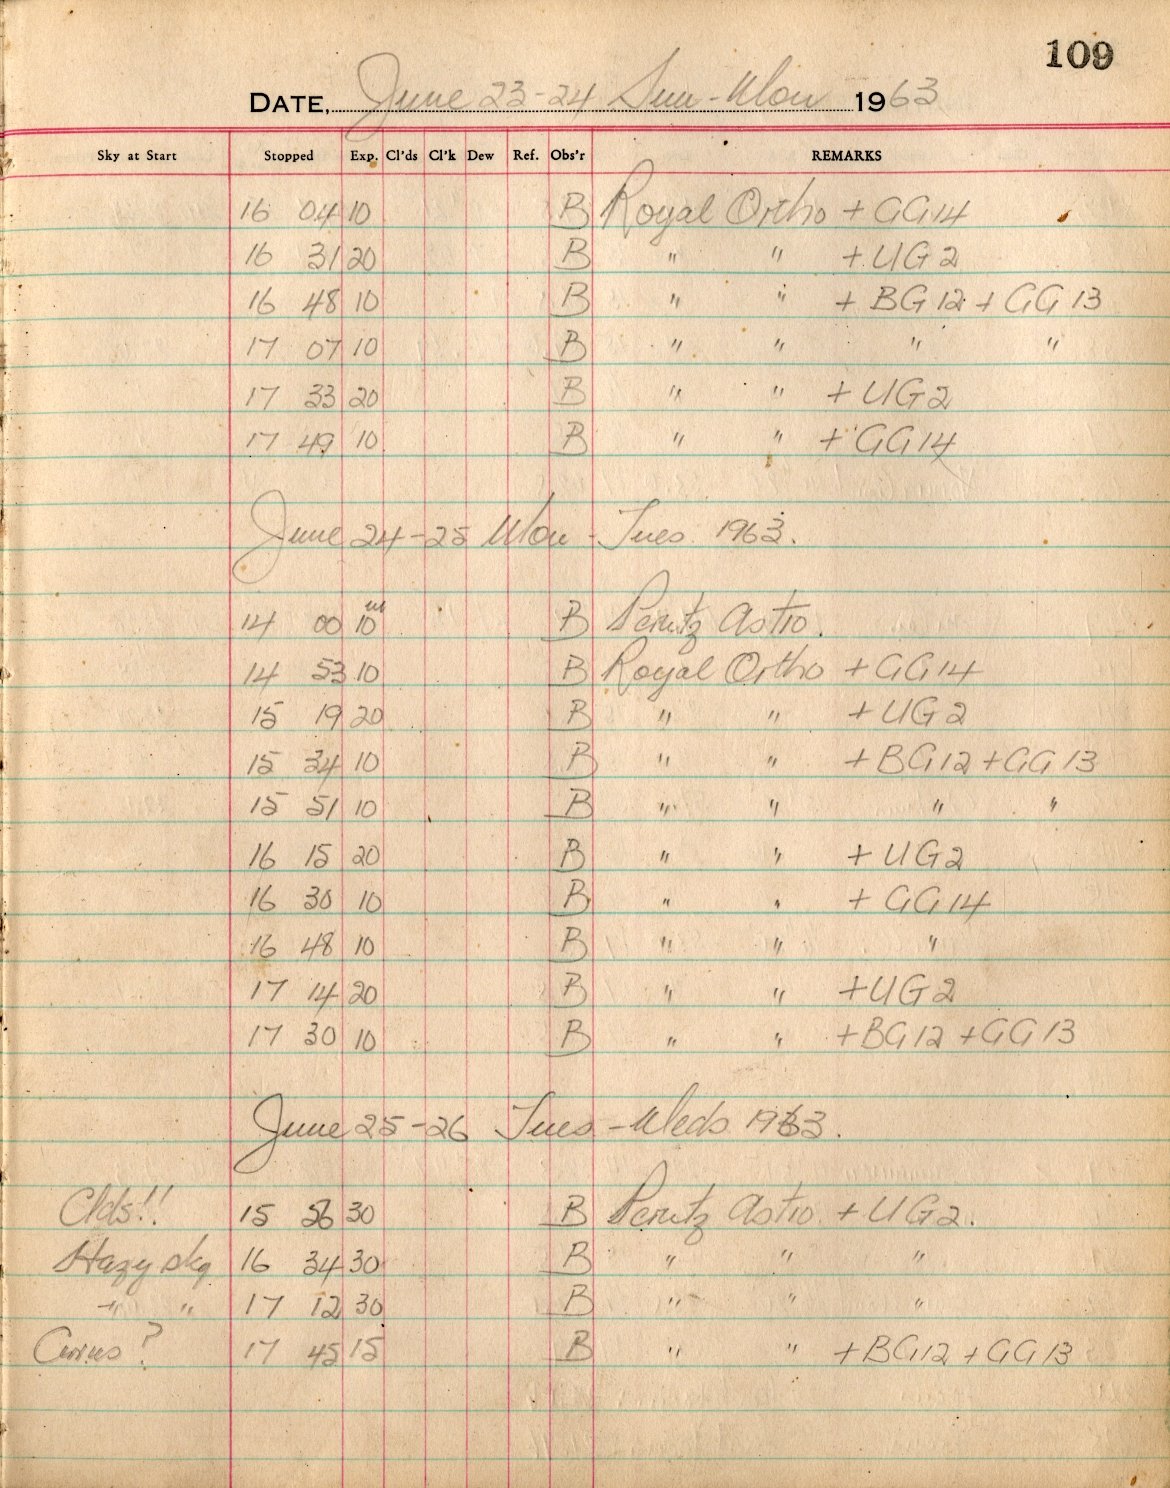 109
DATE, June 23-24 Sun-Mon 1963
Sky at Start Stopped Exp. Cl'ds Cl'k Dew Ref. Obs'r REMARKS
16 04 10 B Royal Ortho + GG14
16 31 20 B " " + UG2
16 48 10 B " " + BG12 + GG13
17 07 10 B " " " "
17 33 20 B " " + UG2
17 49 10 B " " + GG14
June 24-25 Mon - Tues 1963.
14 00 10m B Perutz Astro.
14 53 10 B Royal Ortho + GG14
15 19 20 B " " + UG2
15 34 10 B " " + BG12 + GG13
15 51 10 B " " " "
16 15 20 B " " + UG2
16 30 10 B " " + GG14
16 48 10 B " " "
17 14 20 B " " + UG2
17 30 10 B " " + BG12 + GG13
June 25-26 Tues - Weds 1963.
Clds!! 15 56 30 B Perutz Astro + UG2.
Hazy sky 16 34 30 B " " "
" " 17 12 30 B " " "
Cirrus? 17 45 15 B " " + BG12 + GG13